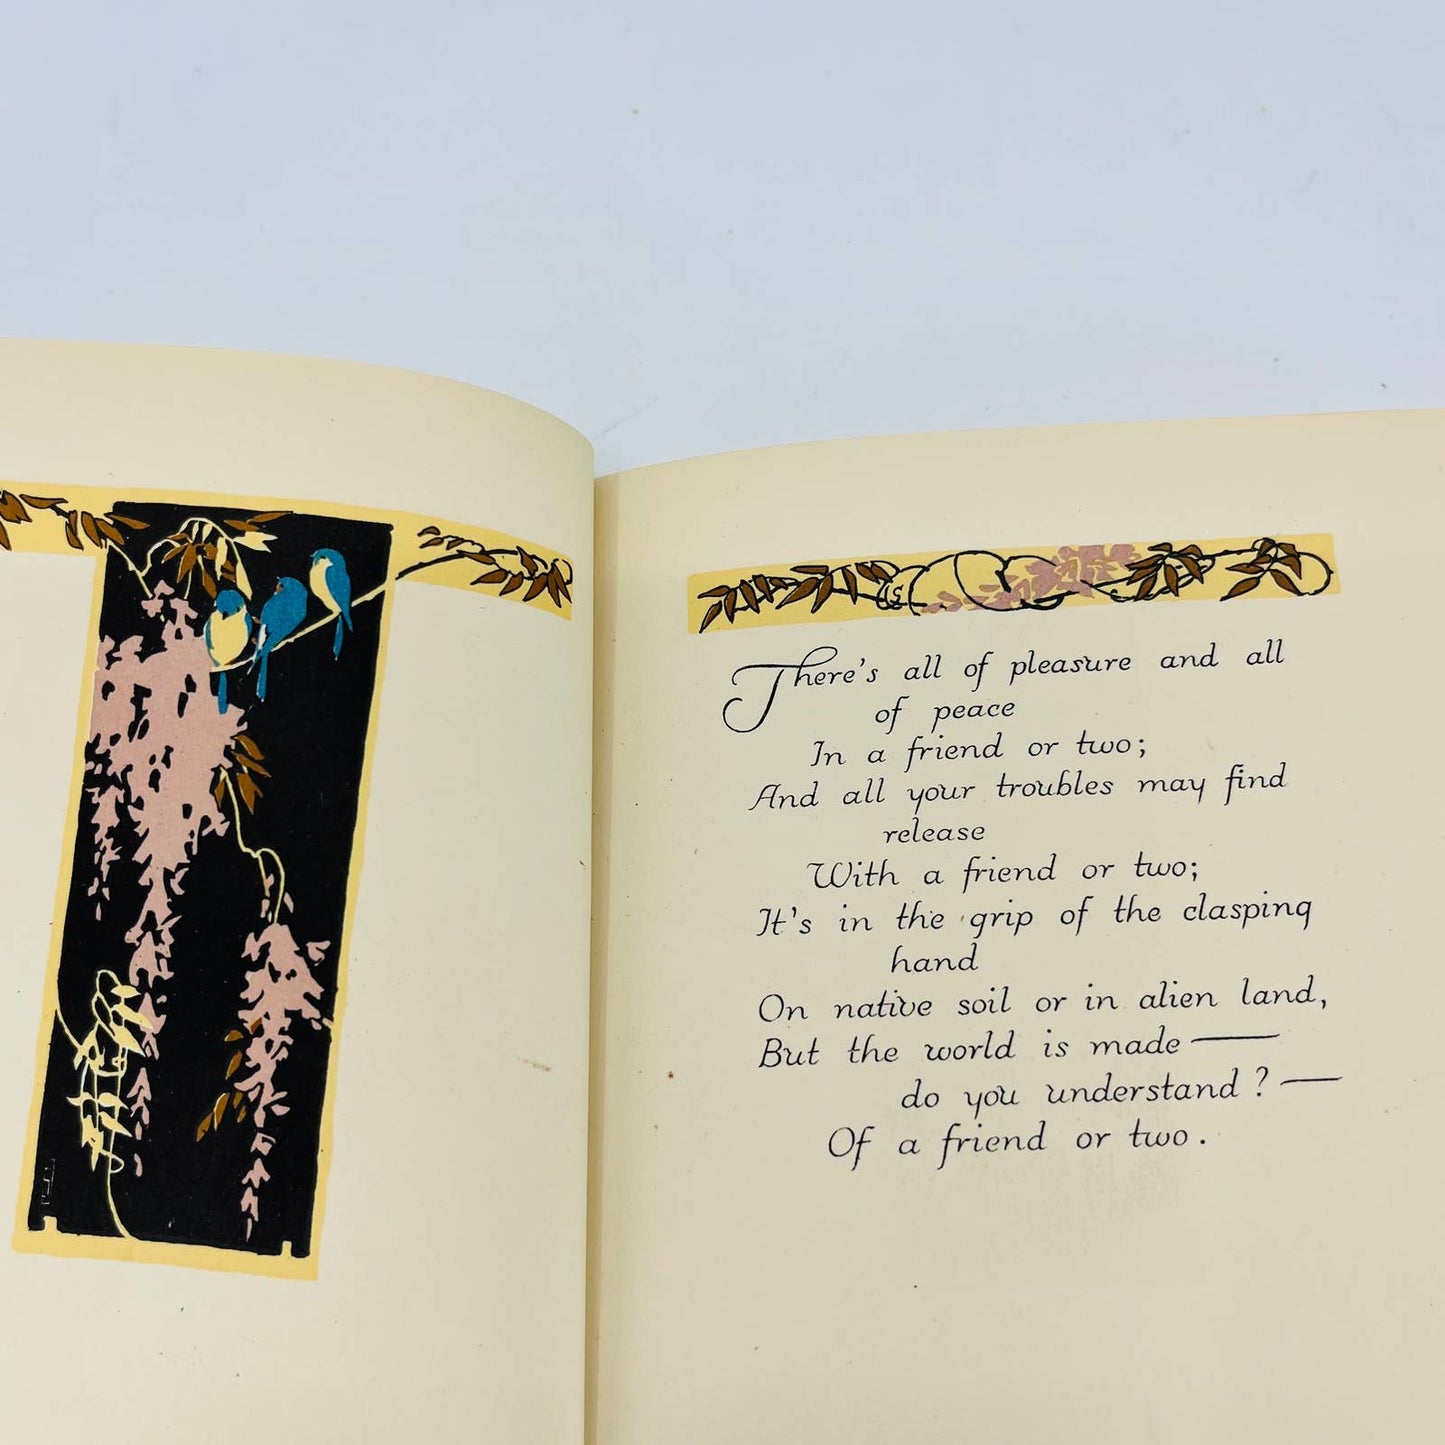 There's all of pleasure and all
of peace
In a friend or two;
And all your troubles may find
release
With a friend or two;
It's in the grip of the clasping
hand
On native soil or in alien land,
But the world is made —
do you understand? —
Of a friend or two.